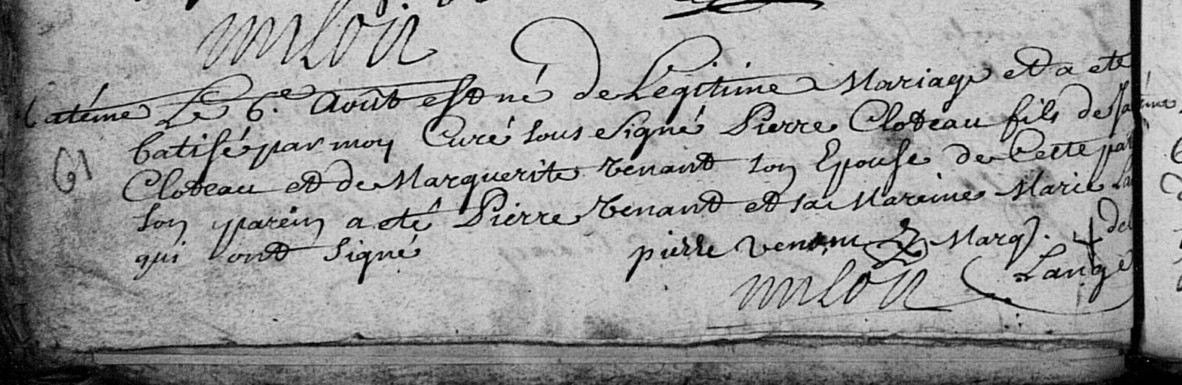 milon
Batéme Le 6.e Août est né de Légitime Mariage et a eté
batisé par moy Curé sous signé Pierre Cloteau fils de
61
Cloteau et de Marguerite venant son Epouse de Cette
son parein a eté Pierre venant et sa Mareine Marie
qui ont signé
pierre venant Marq. + de
Lange
milon